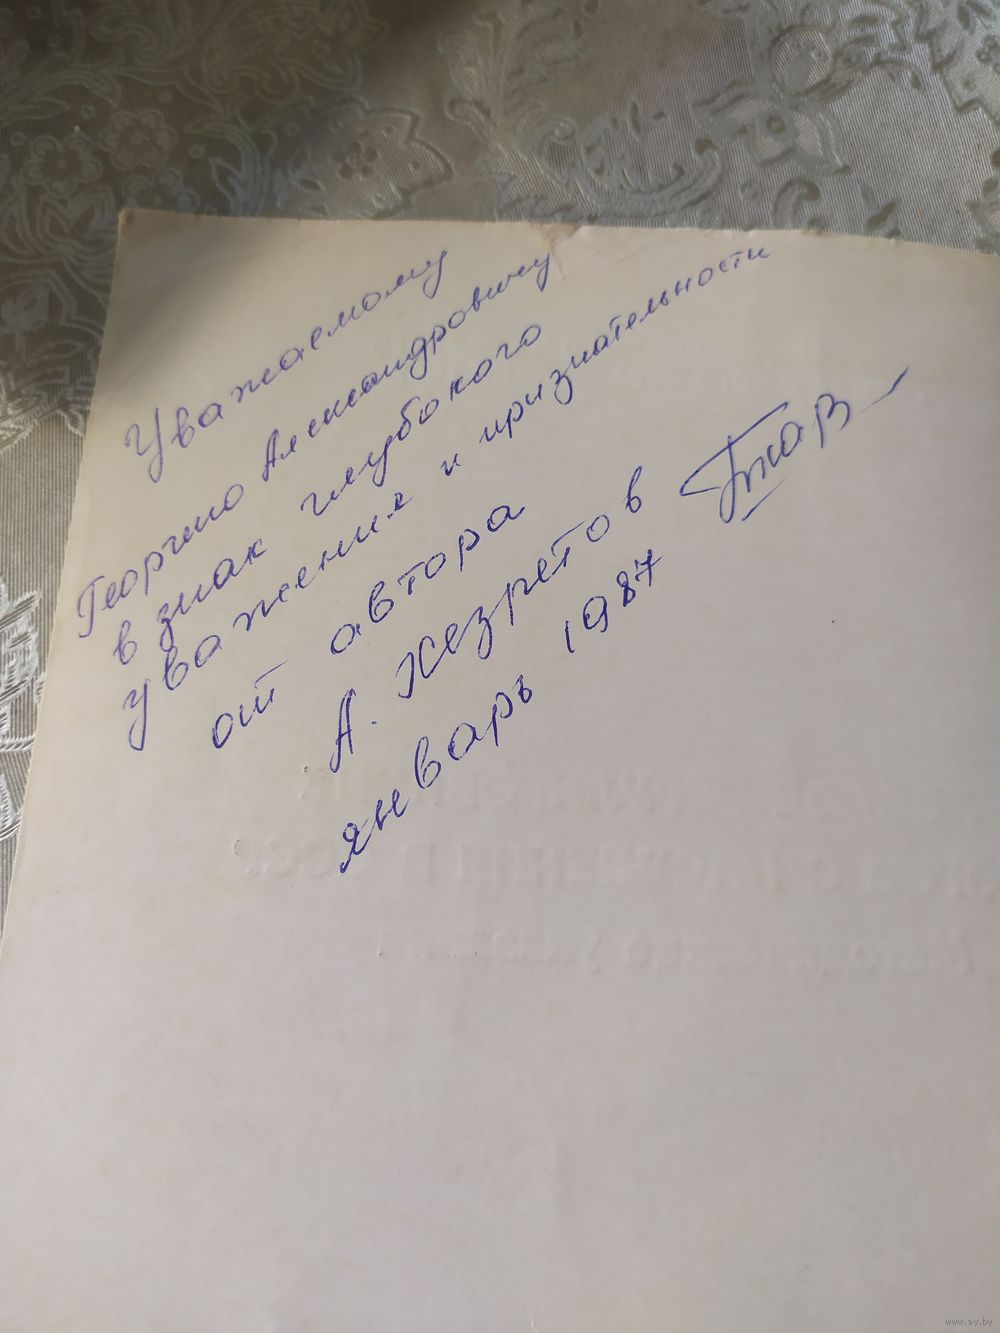 Уважаемому
Георгию Александровичу
в знак глубокого
уважения и признательности
от автора
А. Жезретов
январь 1987
www.ay.by